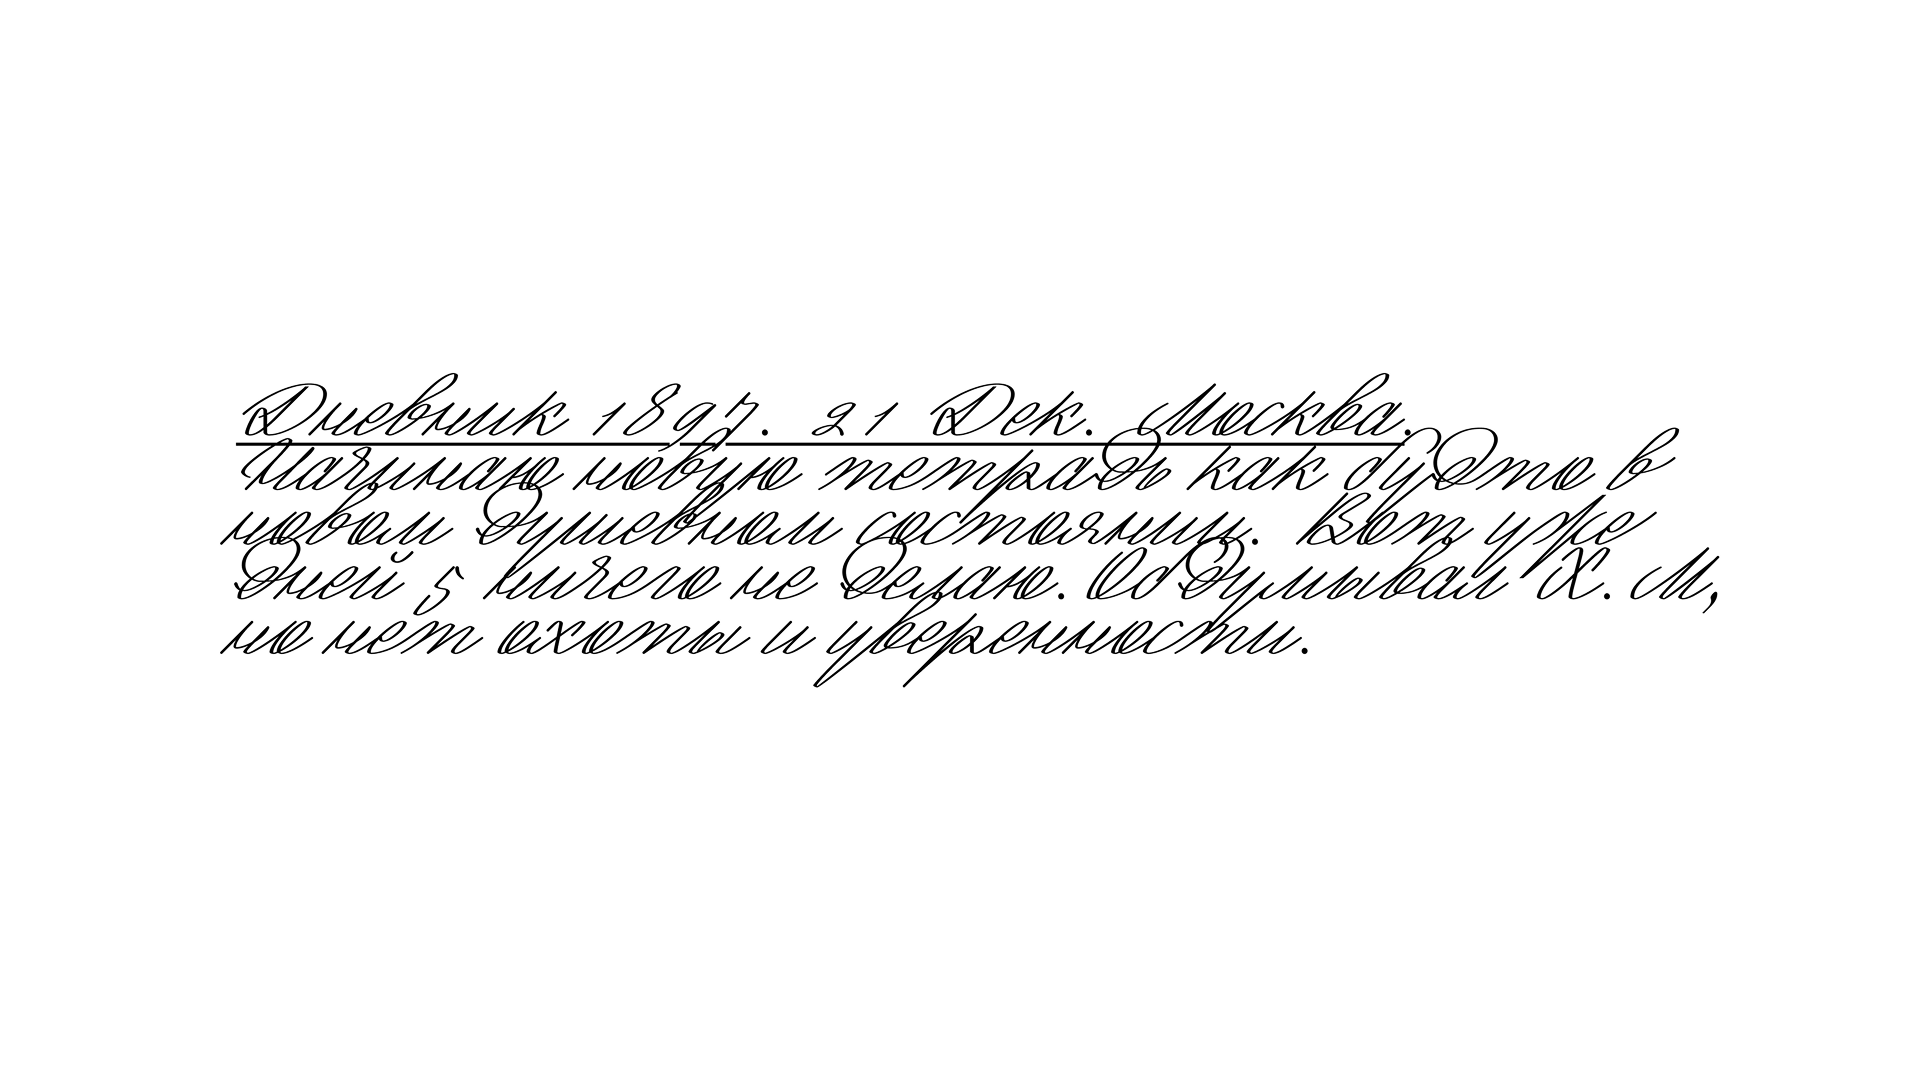 Дневник 1897. 21 Дек. Москва.
Начинаю новую тетрадь как будто в
новом душевном состоянии. Вот уже
дней 5 ничего не делаю. Обдумывал Х. М,
но нет охоты и уверенности.